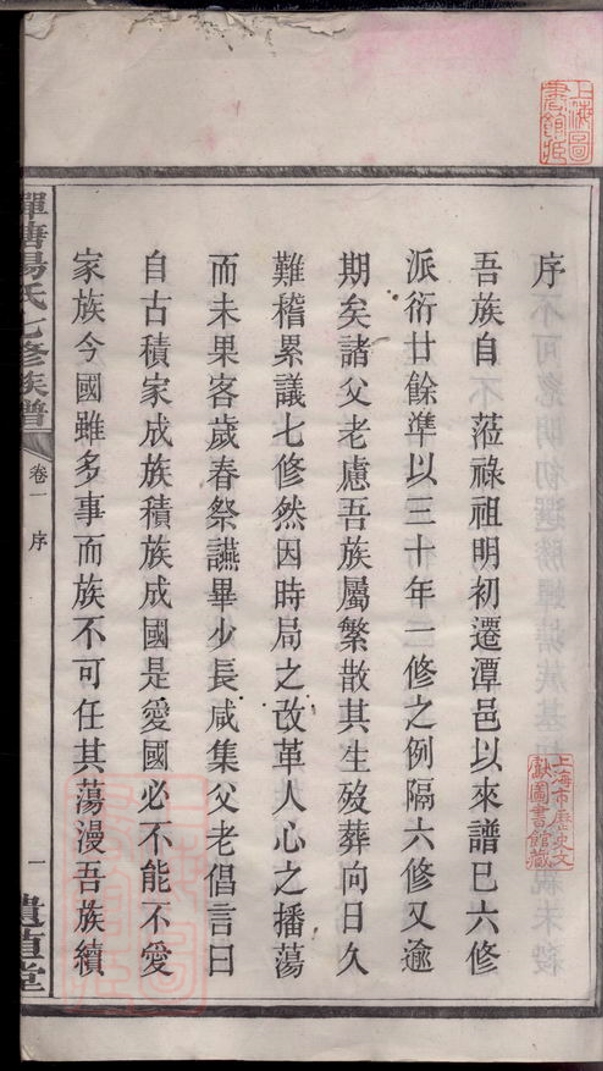 序
吾族自 蒞祿祖明初遷潭邑以來譜已六修
派衍廿餘準以三十年一修之例隔六修又逾
期矣諸父老慮吾族屬繁散其生歿葬向日久
難稽累議七修然因時局之改革人心之播蕩
而未果客歲春祭讌畢少長咸集父老倡言曰
自古積家成族積族成國是愛國必不能不愛
家族今國雖多事而族不可任其蕩漫吾族續
氏七修族譜
卷一
序
一
上海圖書館藏
上海市歷史文獻圖書館藏